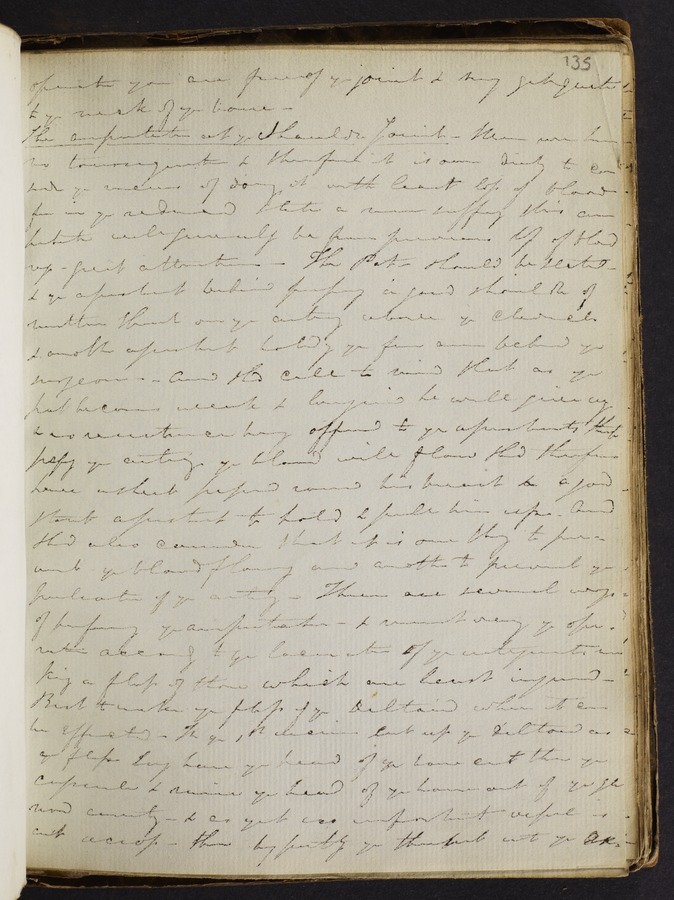 135
operate you are free of ye joint & may get quite
to ye neck of ye bone -
The amputation at ye Shoulder Joint - Here we have
no tourniquet & therefore it is our duty to con
ye means of doing it with least loss of blood
for in ye reduced state a man suffering this am
putation will generally be from previous loss of blood
great attention - The Pat should be seated
& ye assistant behind a good shoulder of
mutton thumb over ye artery above ye clavicle
& another assistant holding ye fore arm behind ye
surgeon - and shd call to mind that as ye
pat becomes weak & languid he will give way
& no resistance being offered to ye assistants thumb
ye artery ye blood will flow shd therefore
have a sheet passed round his breast & a good
stout assistant to hold & pull him up - and
shd also consider that it is one thing to prev
ent ye blood flowing and another to prevent ye
pulsation of ye artery - There are several ways
of performing ye amputation - & must vary ye ope
ration according to ye laceration of ye integuments ma
king a flap of those which are least injured -
Best to make ye flap of ye Deltoid when it can
be effected - In ye 1st incision cut up ye Deltoid as
a flap & ye head of ye bone cut thro ye
capsule & raise ye head of ye bone out of ye gle
noid cavity - & as yet no important vessel is
cut across - then by ye cut ye ax